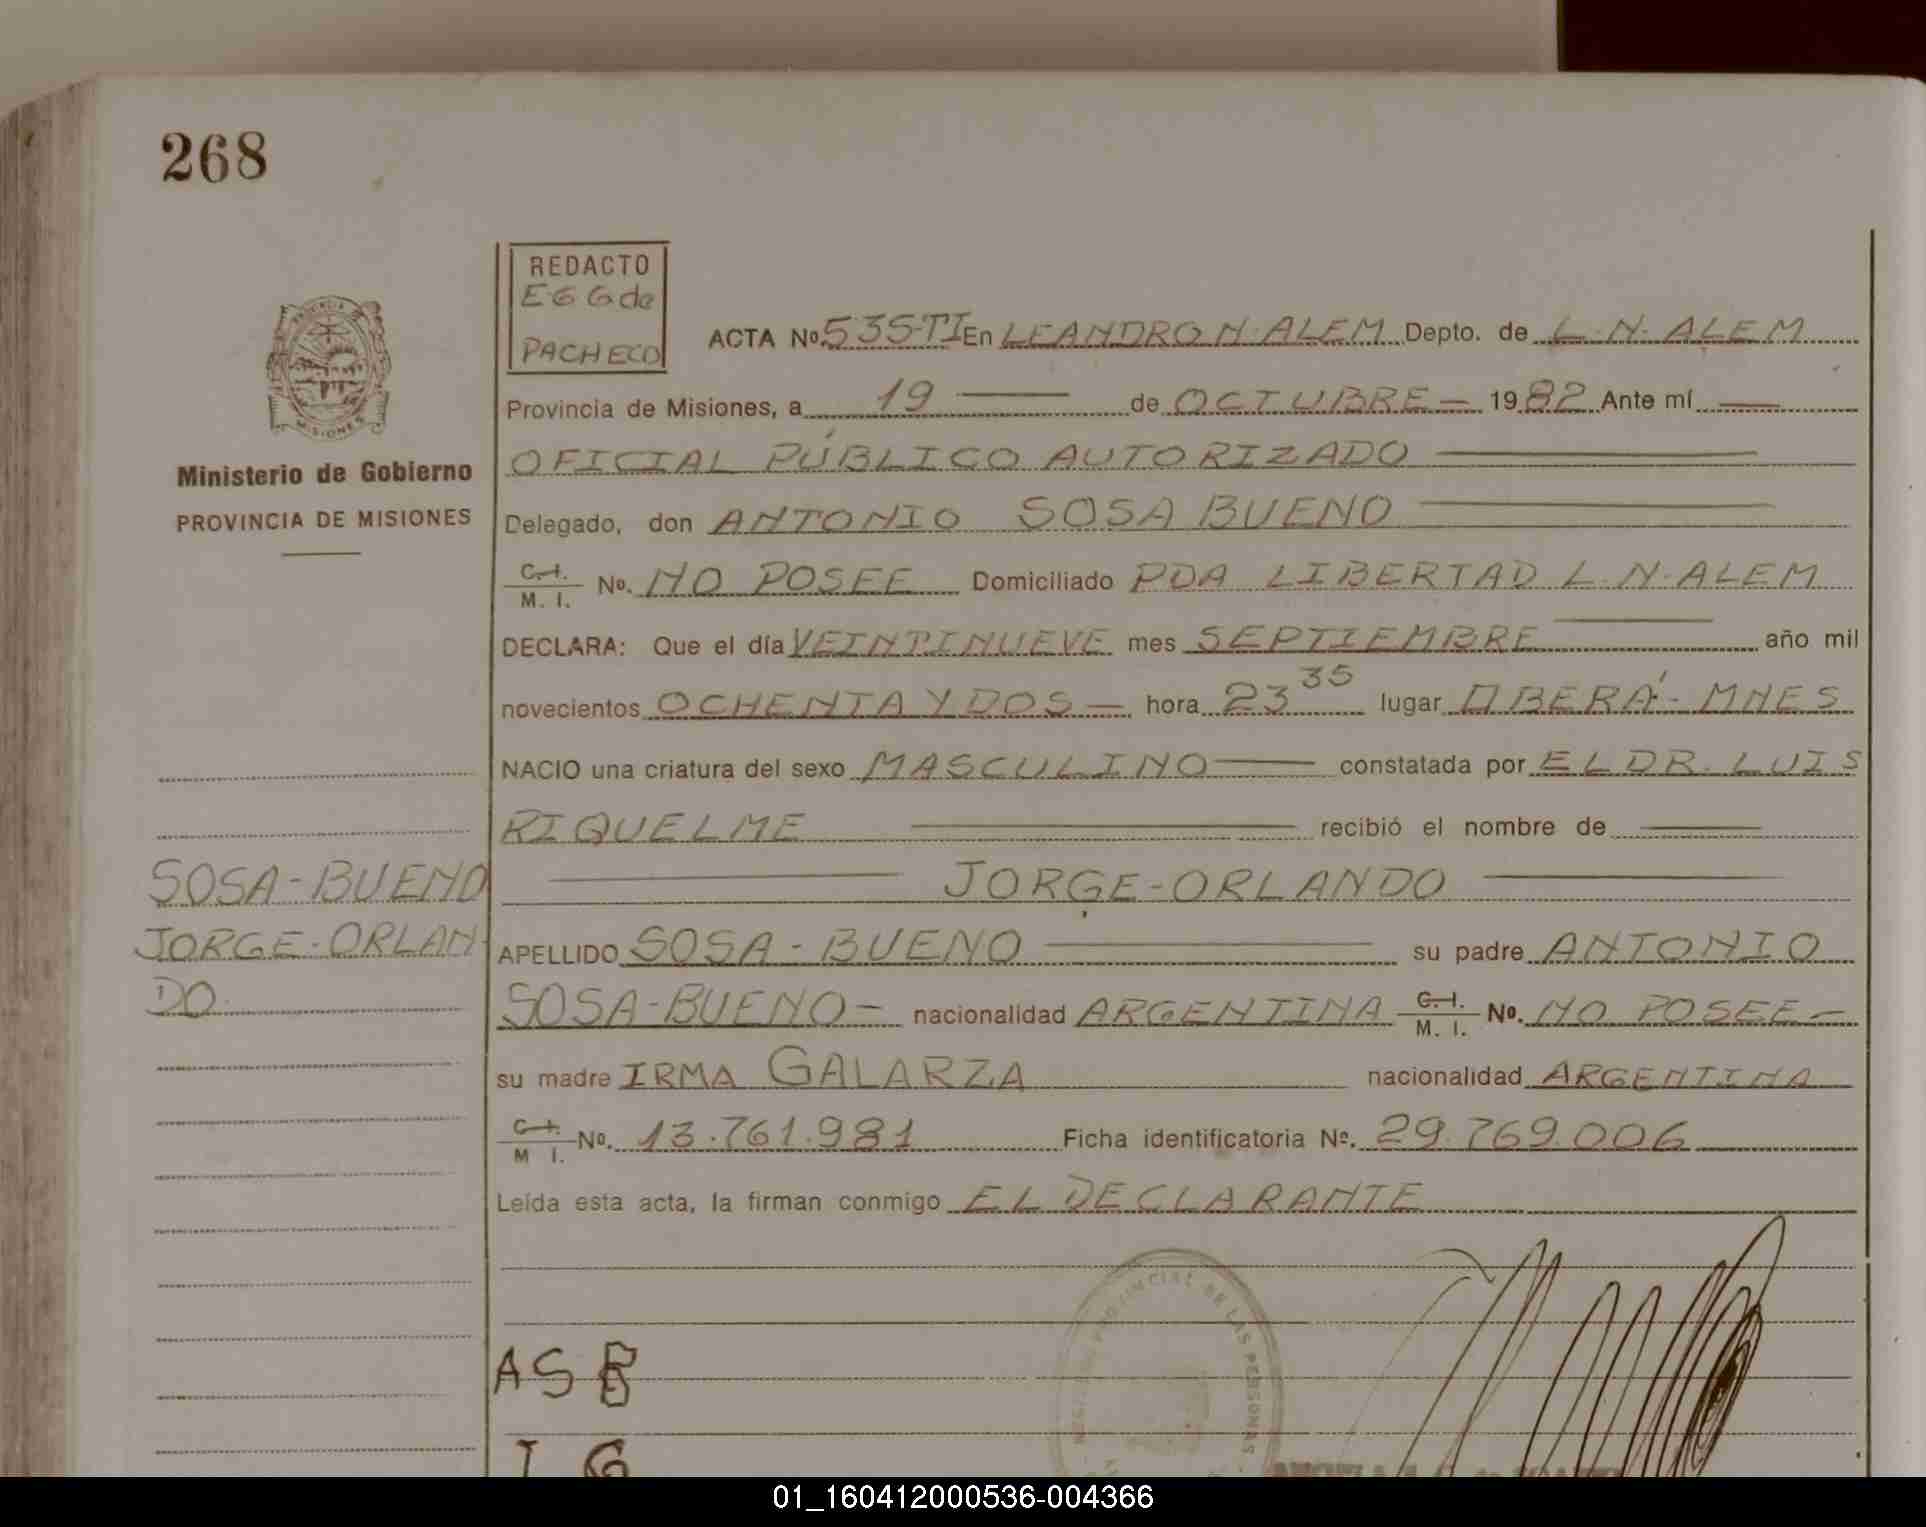 268
REDACTO
E G G de
PACHECO
ACTA Nº 535-TI En LEANDRO N. ALEM Depto. de L. N. ALEM
Provincia de Misiones, a 19 — de OCTUBRE — 1982 Ante mí —
OFICIAL PÚBLICO AUTORIZADO —
MISIONES
Ministerio de Gobierno
PROVINCIA DE MISIONES
Delegado, don ANTONIO SOSA BUENO —
C. I. M. I. Nº. NO POSEE Domiciliado PDA LIBERTAD L. N. ALEM
DECLARA: Que el día VEINTINUEVE mes SEPTIEMBRE — año mil
novecientos OCHENTA Y DOS — hora 23 35 lugar OBERÁ - MNES
NACIO una criatura del sexo MASCULINO — constatada por EL DR. LUIS
RIQUELME — recibió el nombre de —
— JORGE-ORLANDO —
SOSA-BUENO
JORGE-ORLAN-
DO.
APELLIDO SOSA - BUENO — su padre ANTONIO
SOSA-BUENO — nacionalidad ARGENTINA C. I. M. I. Nº. NO POSEE —
su madre IRMA GALARZA nacionalidad ARGENTINA
C. I. M I. Nº. 13.761.981 Ficha identificatoria Nº. 29.769.006
Leída esta acta, la firman conmigo EL DECLARANTE
PROVINCIAL DE LAS PERSONAS
A S B
I G
01_160412000536-004366